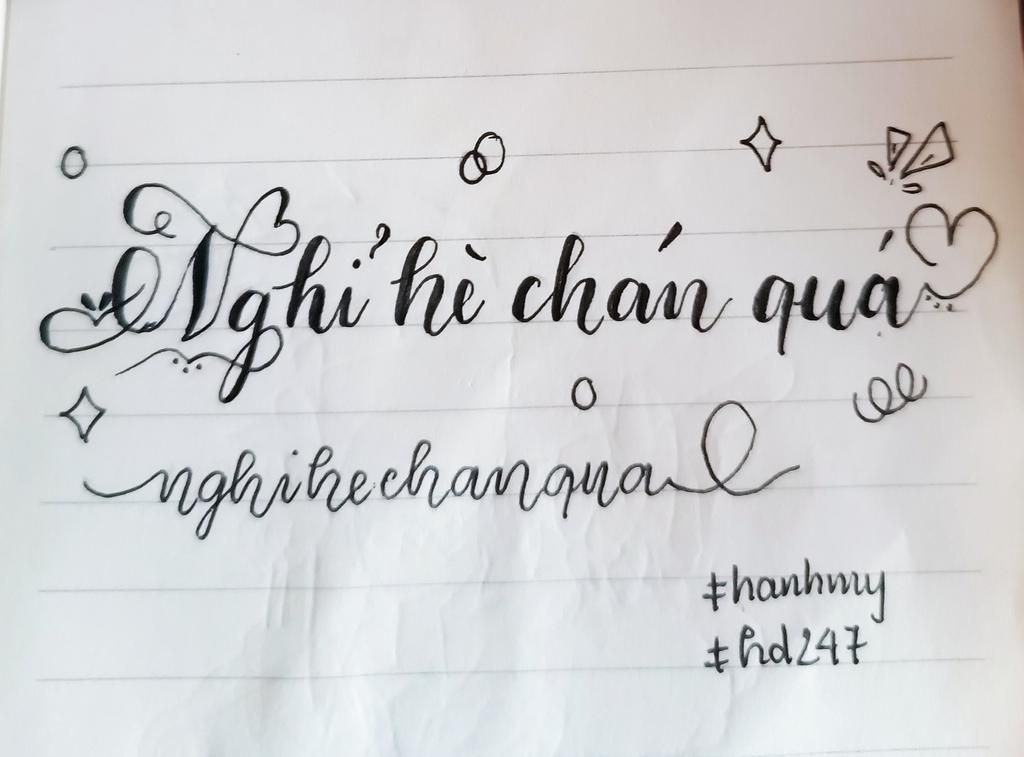 Nghỉ hè chán quá
nghihechanqua
#hanhmy
#hd247